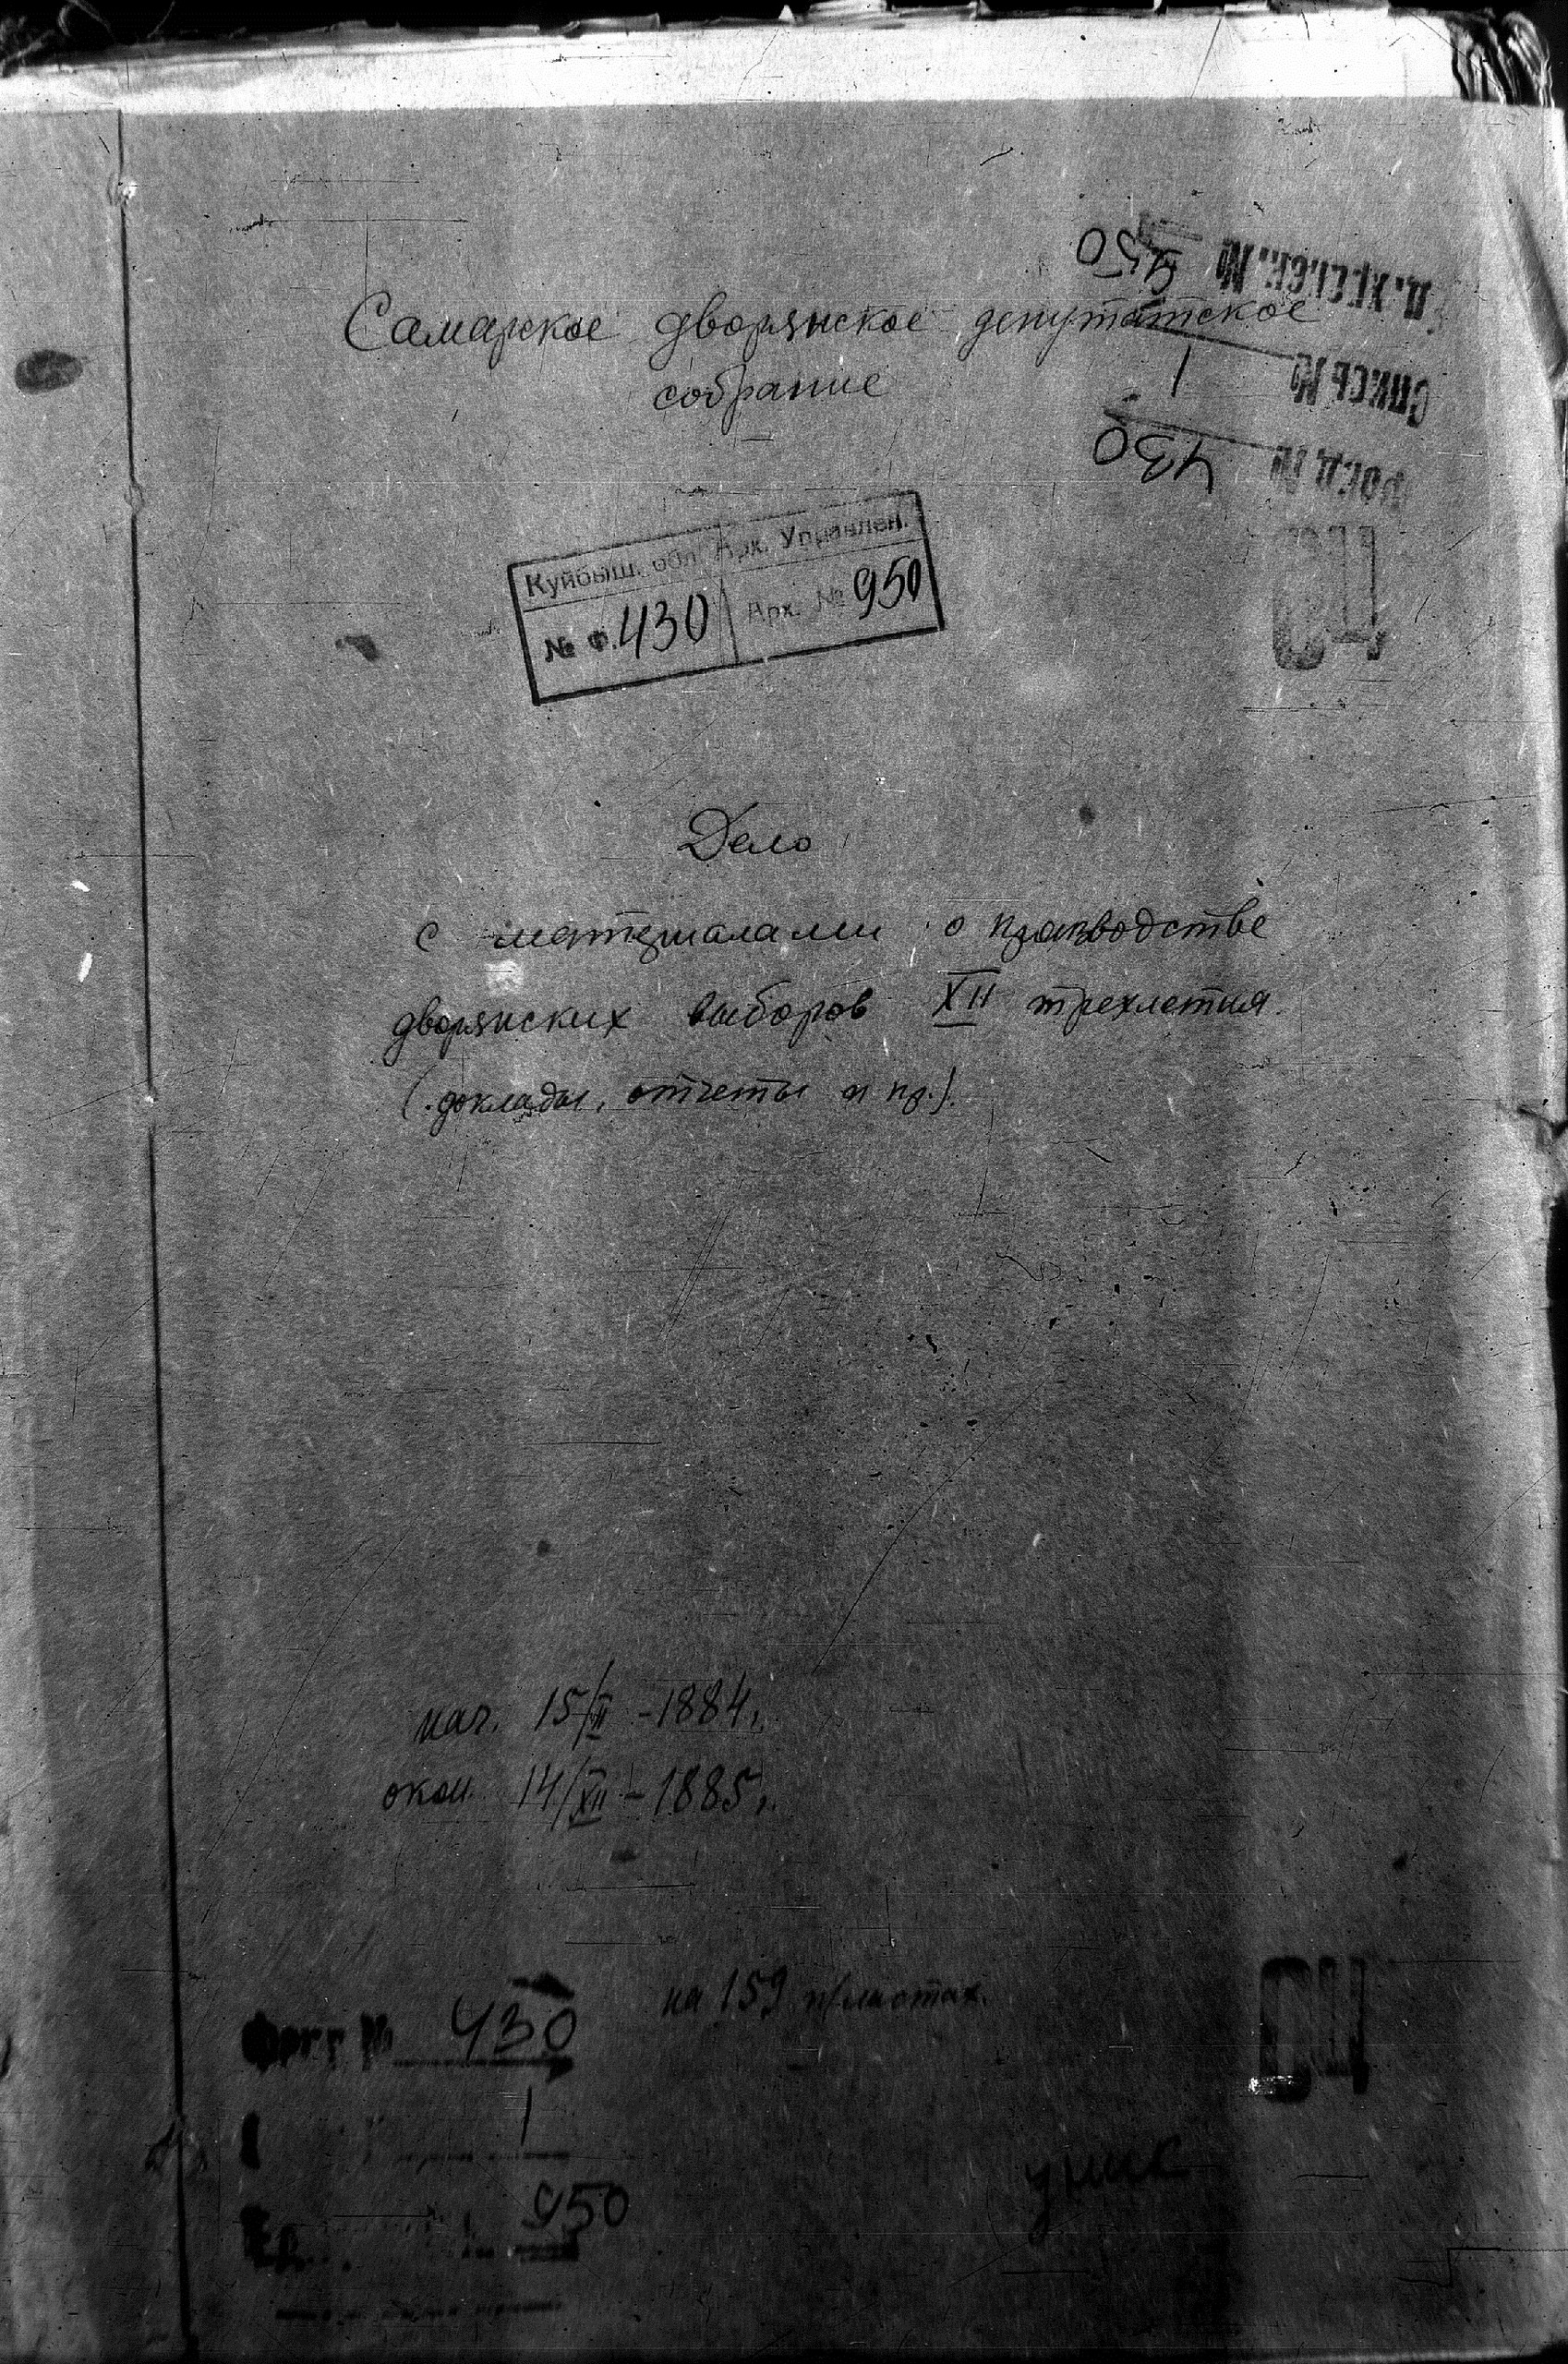 Самарское дворянское депутатское
собрание
950
Опись №
1
430
Фонд №
СЦ
Куйбыш. обл. Арх. Управлен.
№ ф. 430 Арх. № 950
Дело
с материалами о производстве
дворянских выборов XII трехлетия
(доклады, отчеты и пр.).
нач. 15/II - 1884г.
окон. 14/XII - 1885г.
на 159 п/листах.
Фонд № 430
1
950
СЦ